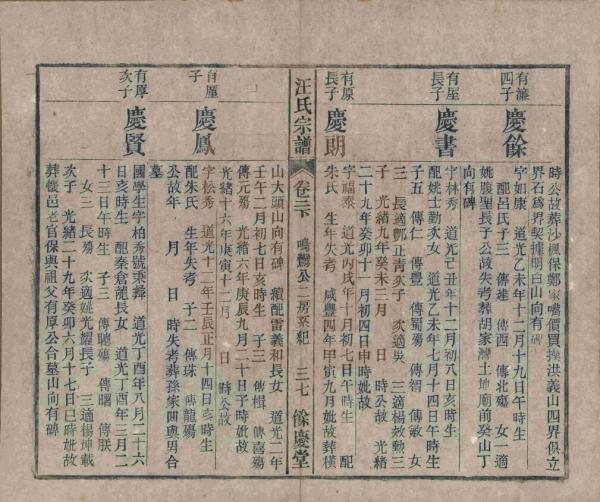 時公故葬沙楓保鄭家嘴價買操洪義山四界俱立
界石為界契據明白山向有碑
有濂
四子
慶餘
字如康 道光乙未年十二月十九日午時生
配呂氏子三 傳進 傳酉 傳北殤 女一適
姚腹聖長子公故失考葬胡家灣土地廟前癸山丁
向有碑
有垕
長子
慶書
字林秀 道光己丑年十二月初八日亥時生
配姚士勤次女 道光乙未年七月十四日午時生
子五 傳仁 傳豐 傳蜀殤 傳智 傳敏 女
三 長適鄧正青次子 次適吳 三適楊效勲三
子 光緒九年癸未三月 日 時公故 光緒
二十九年癸卯十一月初四日申時妣故
有原
長子
慶朗
字福泰 道光丙戌年十月初七日午時生 配
朱氏 生年失考 咸豐四年甲寅九月妣故葬橫
汪氏宗譜
卷三下
鳴灣公二房菜紀
三七
餘慶堂
山大頭山向有碑 續配雷義和長女 道光二年
壬午二月初七日亥時生 子三 傳楫 傳喜殤
傳元殤 光緒六年庚辰九月二十日子時妣故
光緒十六年庚寅十二月 日 時公故
有垕
子
慶鳳
字松秀 道光十二年壬辰正月十四日亥時生
配朱氏 生年失考 子二 傳珠 傳龍殤
公故年 月 日 時失考葬孫家田與男合
墓
有厚
次子
慶賢
國學生字柏秀號乘舞 道光丁酉年八月二十六
日亥時生 配秦倉龍長女 道光丁酉年三月二
十三日午時生 子三 傳聰殤 傳曙 傳朕
女三 長殤 次適姚光耀長子 三適楊坤載
次子 光緒二十九年癸卯六月十七日巳時妣故
葬懷邑老官保與祖父有厚公合墓山向有碑